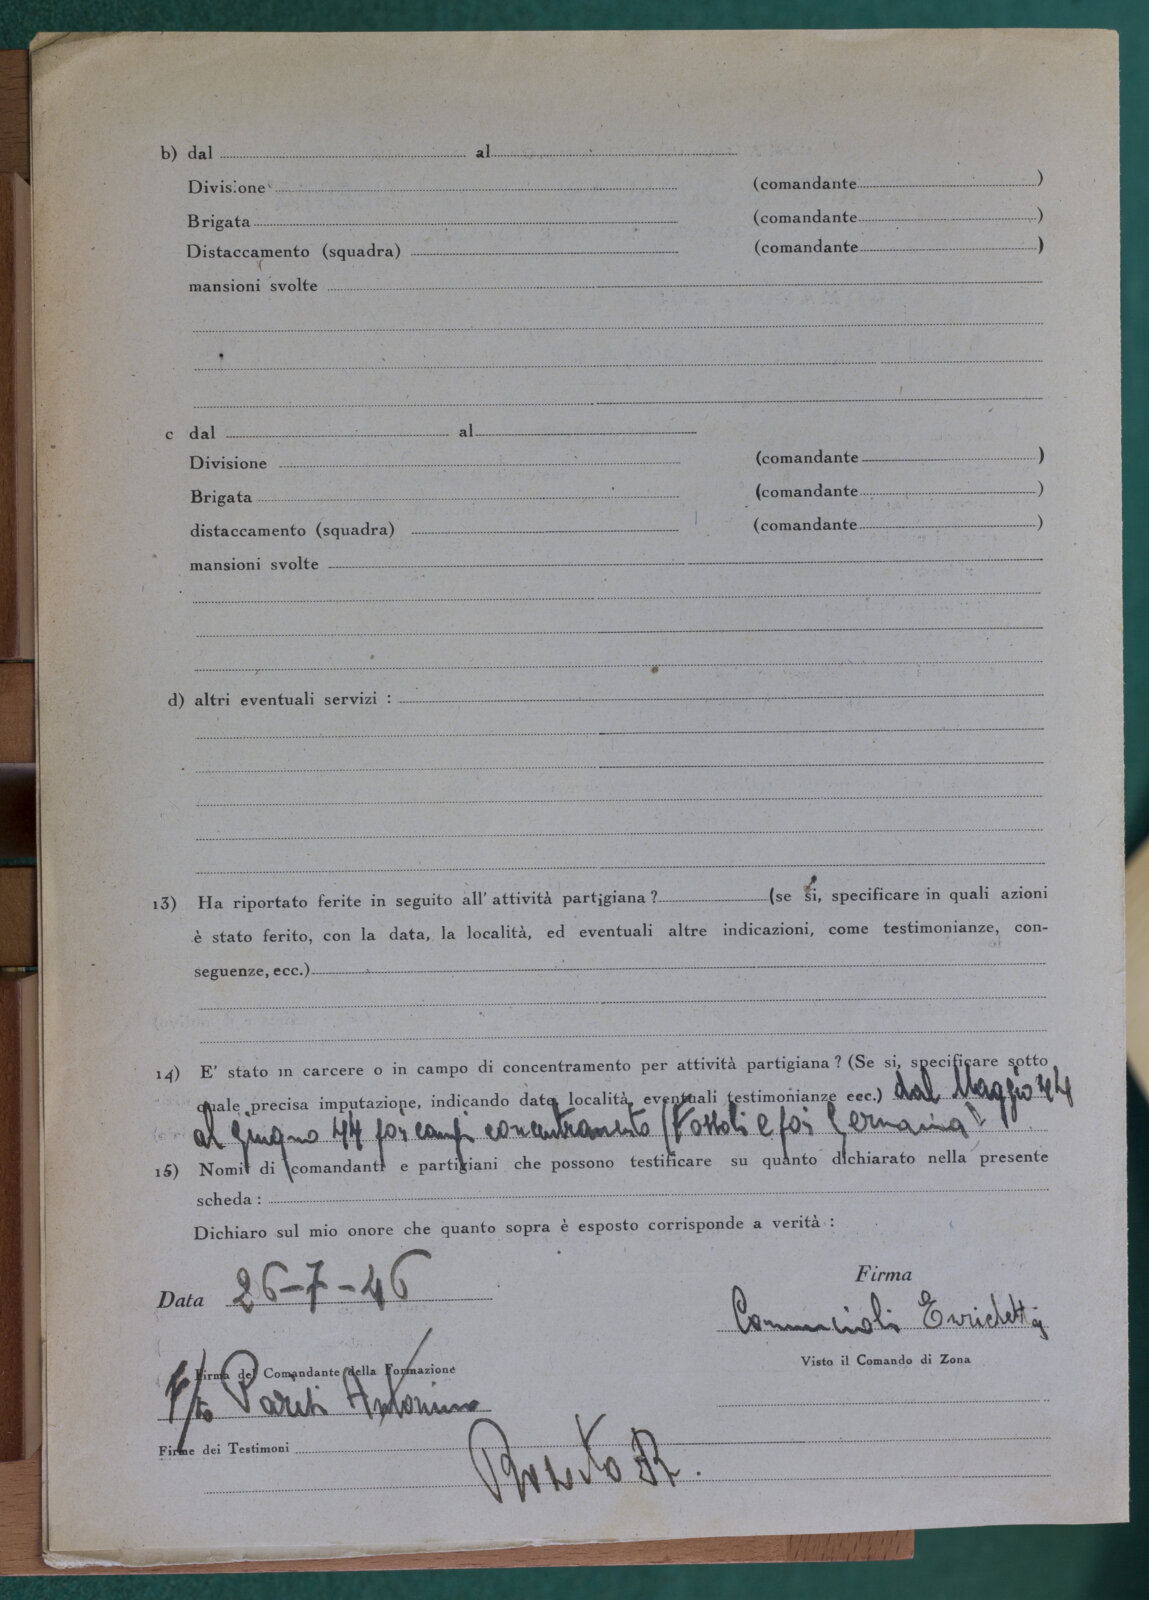 b) dal al
Divisione (comandante )
Brigata (comandante )
Distaccamento (squadra) (comandante )
mansioni svolte
c dal al
Divisione (comandante )
Brigata (comandante )
distaccamento (squadra) (comandante )
mansioni svolte
d) altri eventuali servizi :
13) Ha riportato ferite in seguito all' attività partigiana ? (se si, specificare in quali azioni
è stato ferito, con la data, la località, ed eventuali altre indicazioni, come testimonianze, con-
seguenze, ecc.)
14) E' stato in carcere o in campo di concentramento per attività partigiana ? (Se si, specificare sotto
quale precisa imputazione, indicando date, località, eventuali testimonianze ecc.) dal Maggio 44
al giugno 44 poi campi concentramento (Fossoli e poi Germania)
15) Nomi di comandanti e partigiani che possono testificare su quanto dichiarato nella presente
scheda :
Dichiaro sul mio onore che quanto sopra è esposto corrisponde a verità :
Data 26-7-46
Firma
Comuncioli Enrichetta
Firma del Comandante della Formazione
Visto il Comando di Zona
F/to Parisi Antonino
Firme dei Testimoni